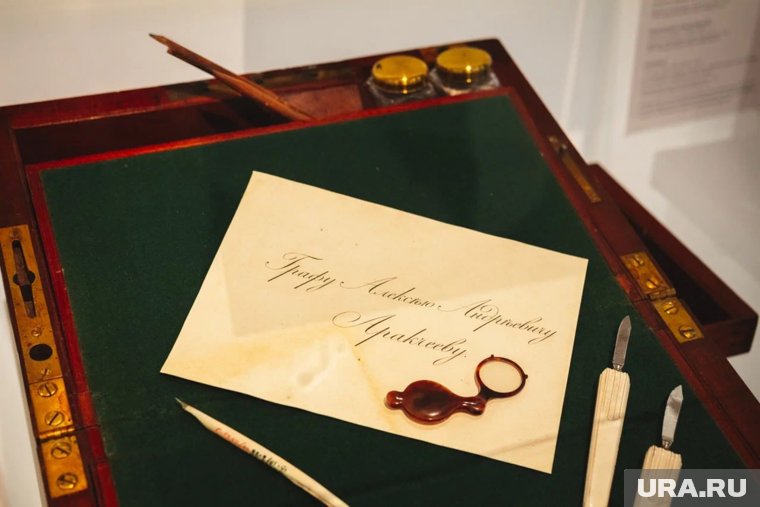 Графу Алексѣю Андрѣевичу
Аракчееву.
URA.RU